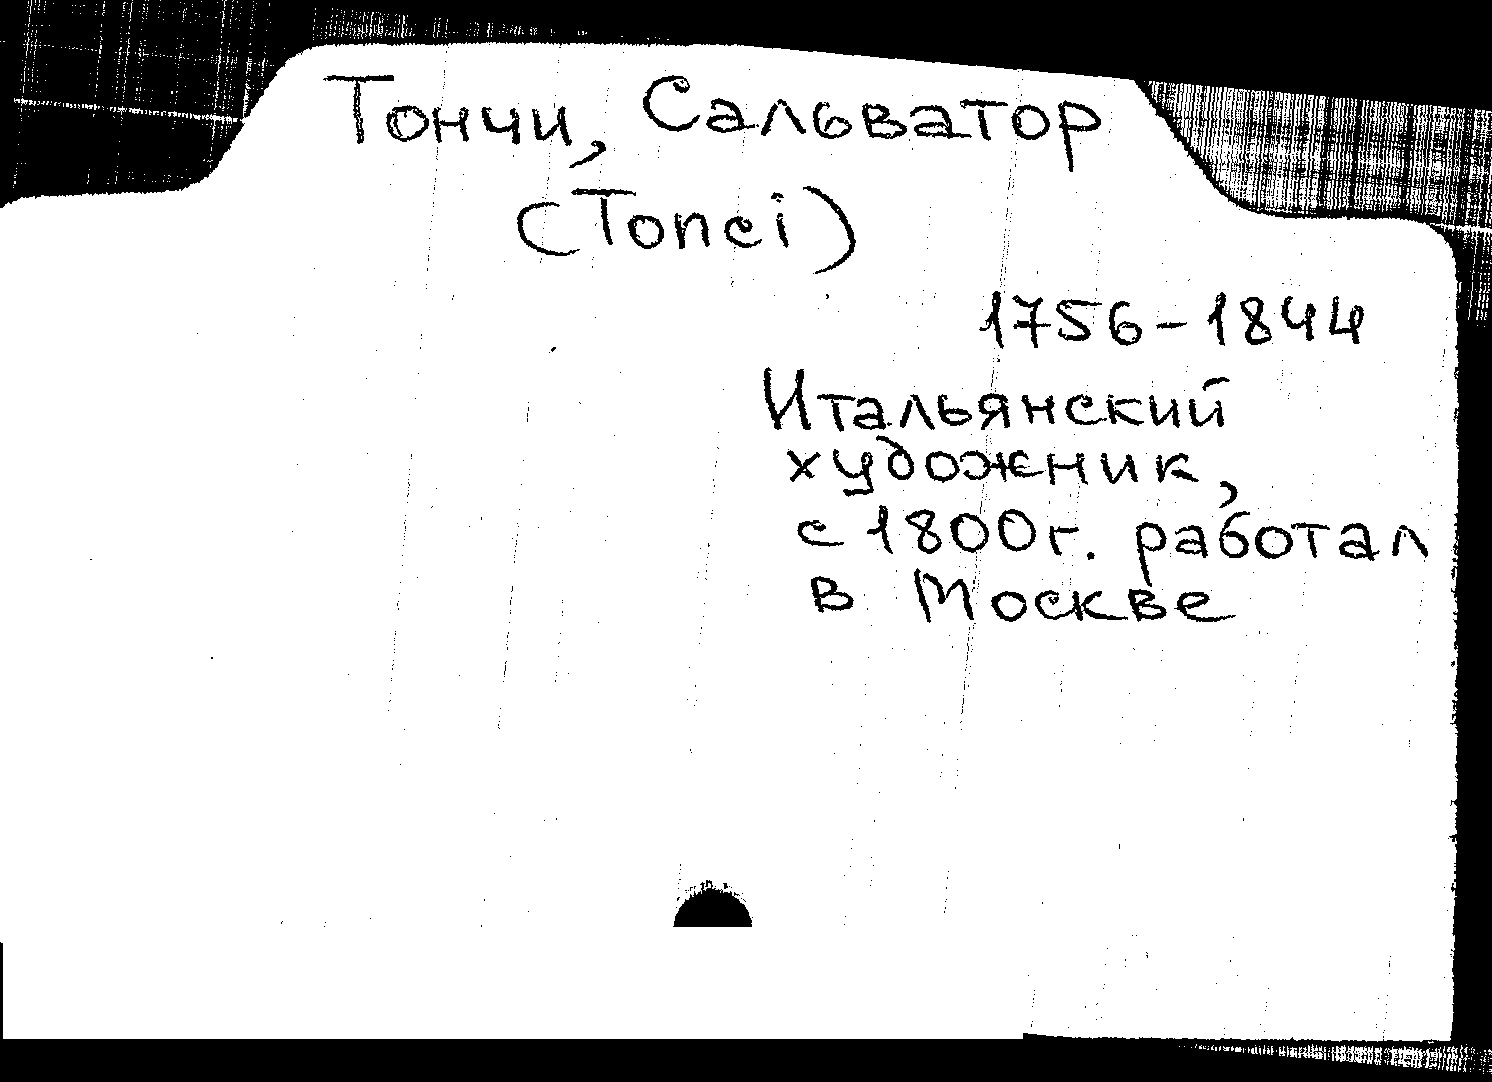 Тончи, Сальватор
(Tonci)
1756-1844
Итальянский
художник,
с 1800г. работал
в Москве